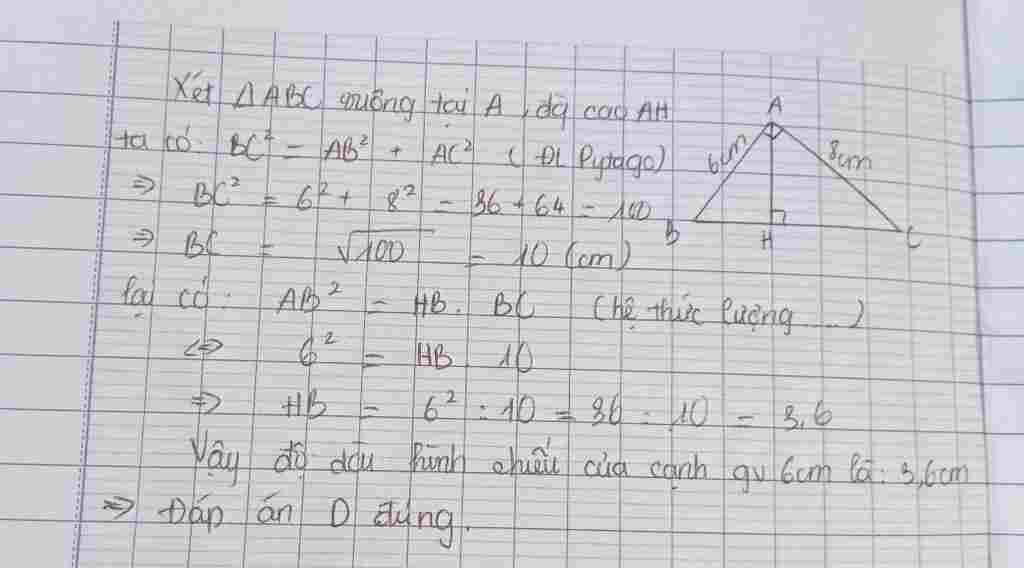 Xét ΔABC vuông tại A, đg cao AH
ta có: BC² = AB² + AC² (ĐL Pytago)
⇒ BC² = 6² + 8² = 36 + 64 = 100
⇒ BC = √100 = 10 (cm)
lại có: AB² = HB. BC (hệ thức lượng ...)
⇔ 6² = HB. 10
⇒ HB = 6² : 10 = 36 : 10 = 3,6
Vậy độ dài hình chiếu của cạnh gv 6cm là: 3,6cm
⇒ Đáp án D đúng.
A
6cm
8cm
B
H
C